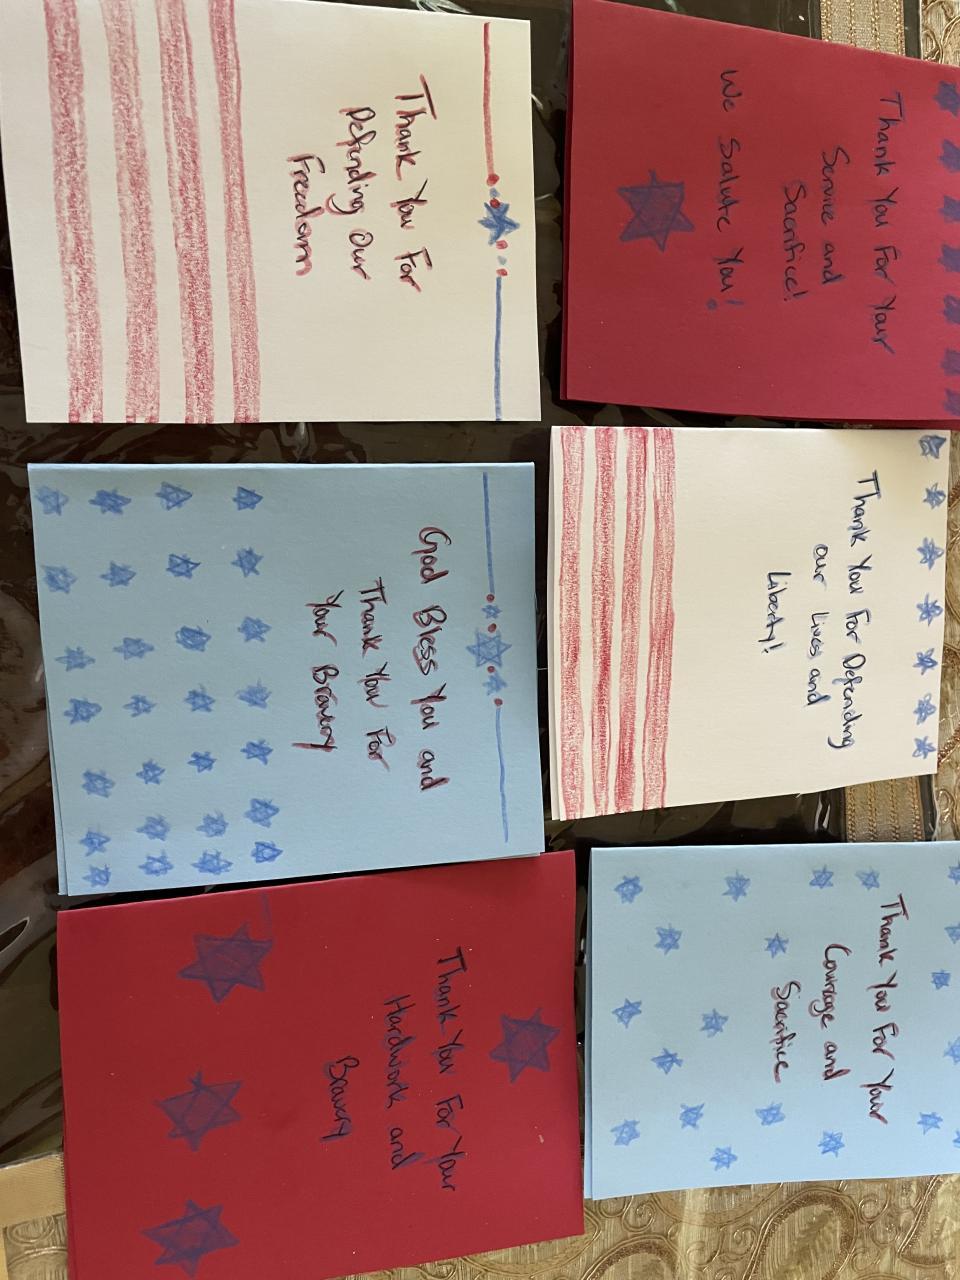 Thank You For Your
Service and
Sacrifice!
We Salute You!
Thank You For Defending
our Lives and
Liberty!
Thank You For Your
Courage and
Sacrifice
Thank You For
Defending our
Freedom
God Bless You and
Thank You For
Your Bravery
Thank You For Your
Hardwork and
Bravery